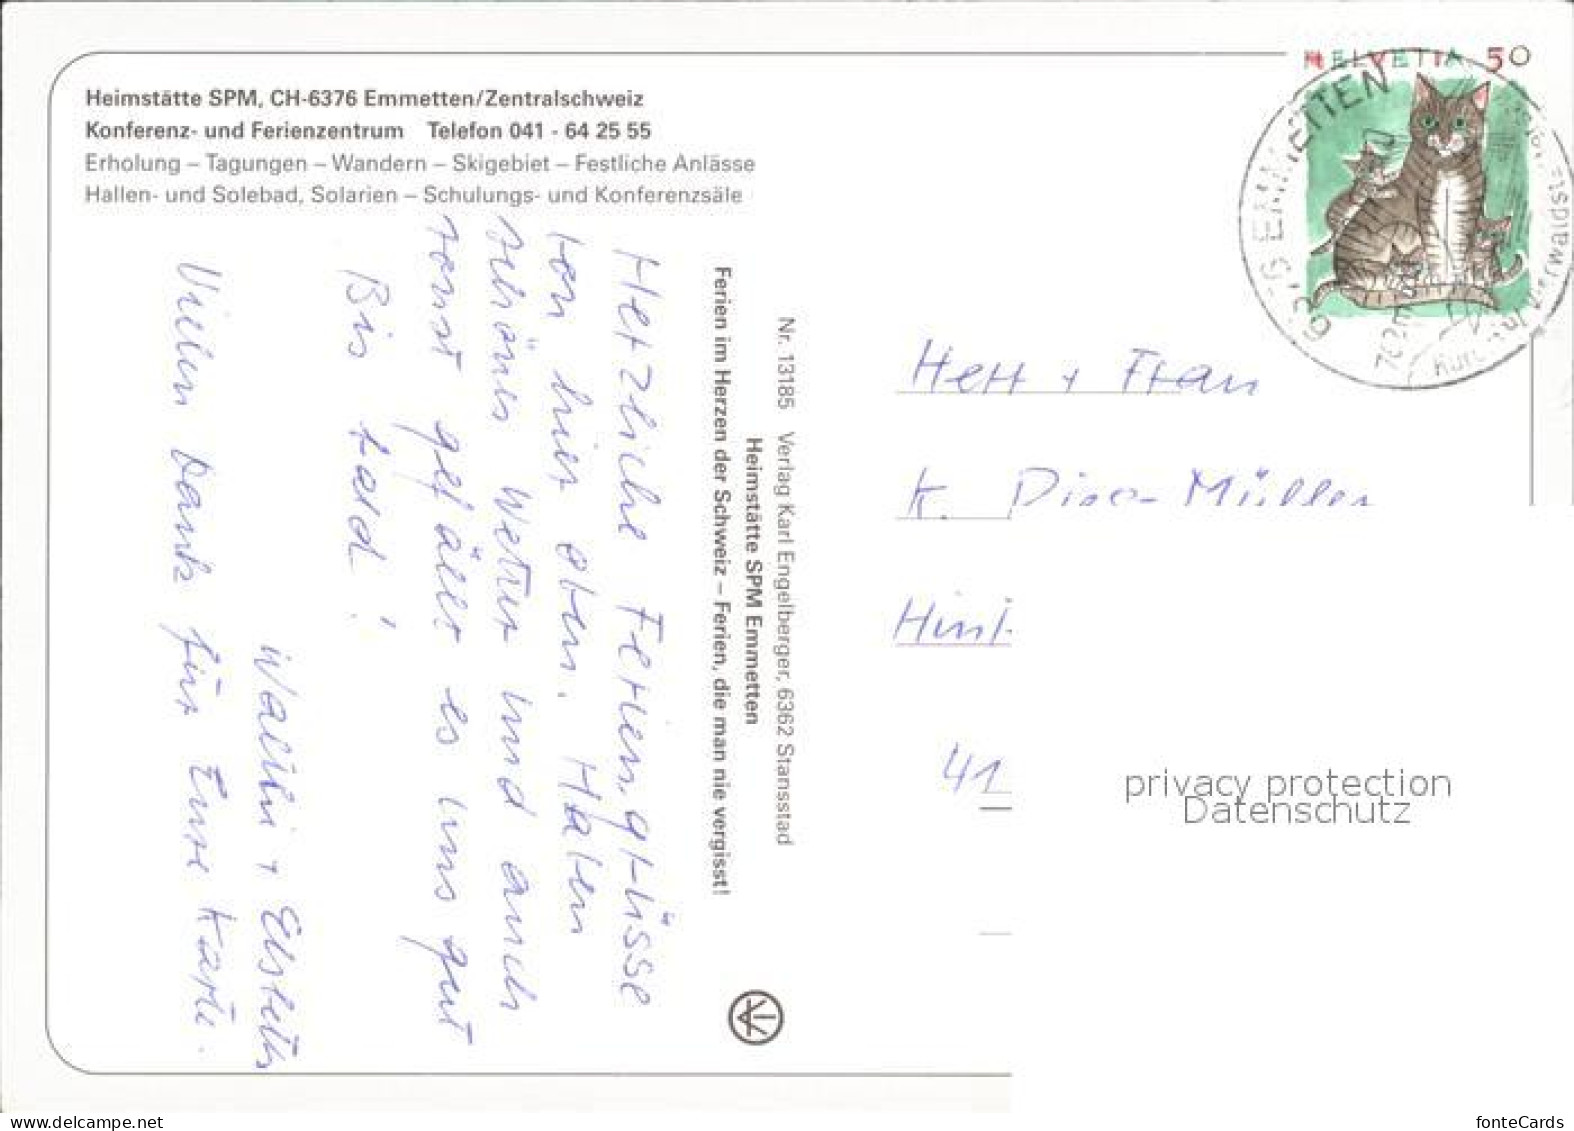 Heimstätte SPM, CH-6376 Emmetten/Zentralschweiz
Konferenz- und Ferienzentrum Telefon 041 - 64 25 55
Erholung – Tagungen – Wandern – Skigebiet – Festliche Anlässe
Hallen- und Solebad, Solarien – Schulungs- und Konferenzsäle
Herzliche Feriengrüsse
von hier oben. Haben
schönes Wetter und auch
sonst gefällt es uns gut
Bis bald!
+
Vielen Dank für Eure Karte.
Ferien im Herzen der Schweiz – Ferien, die man nie vergisst!
Heimstätte SPM Emmetten
Nr. 13185 Verlag Karl Engelberger, 6362 Stansstad
HELVETIA 50
6376 EMMETTEN
Herr + Frau
K. Müller
41
privacy protection
Datenschutz
www.delcampe.net
fonteCards